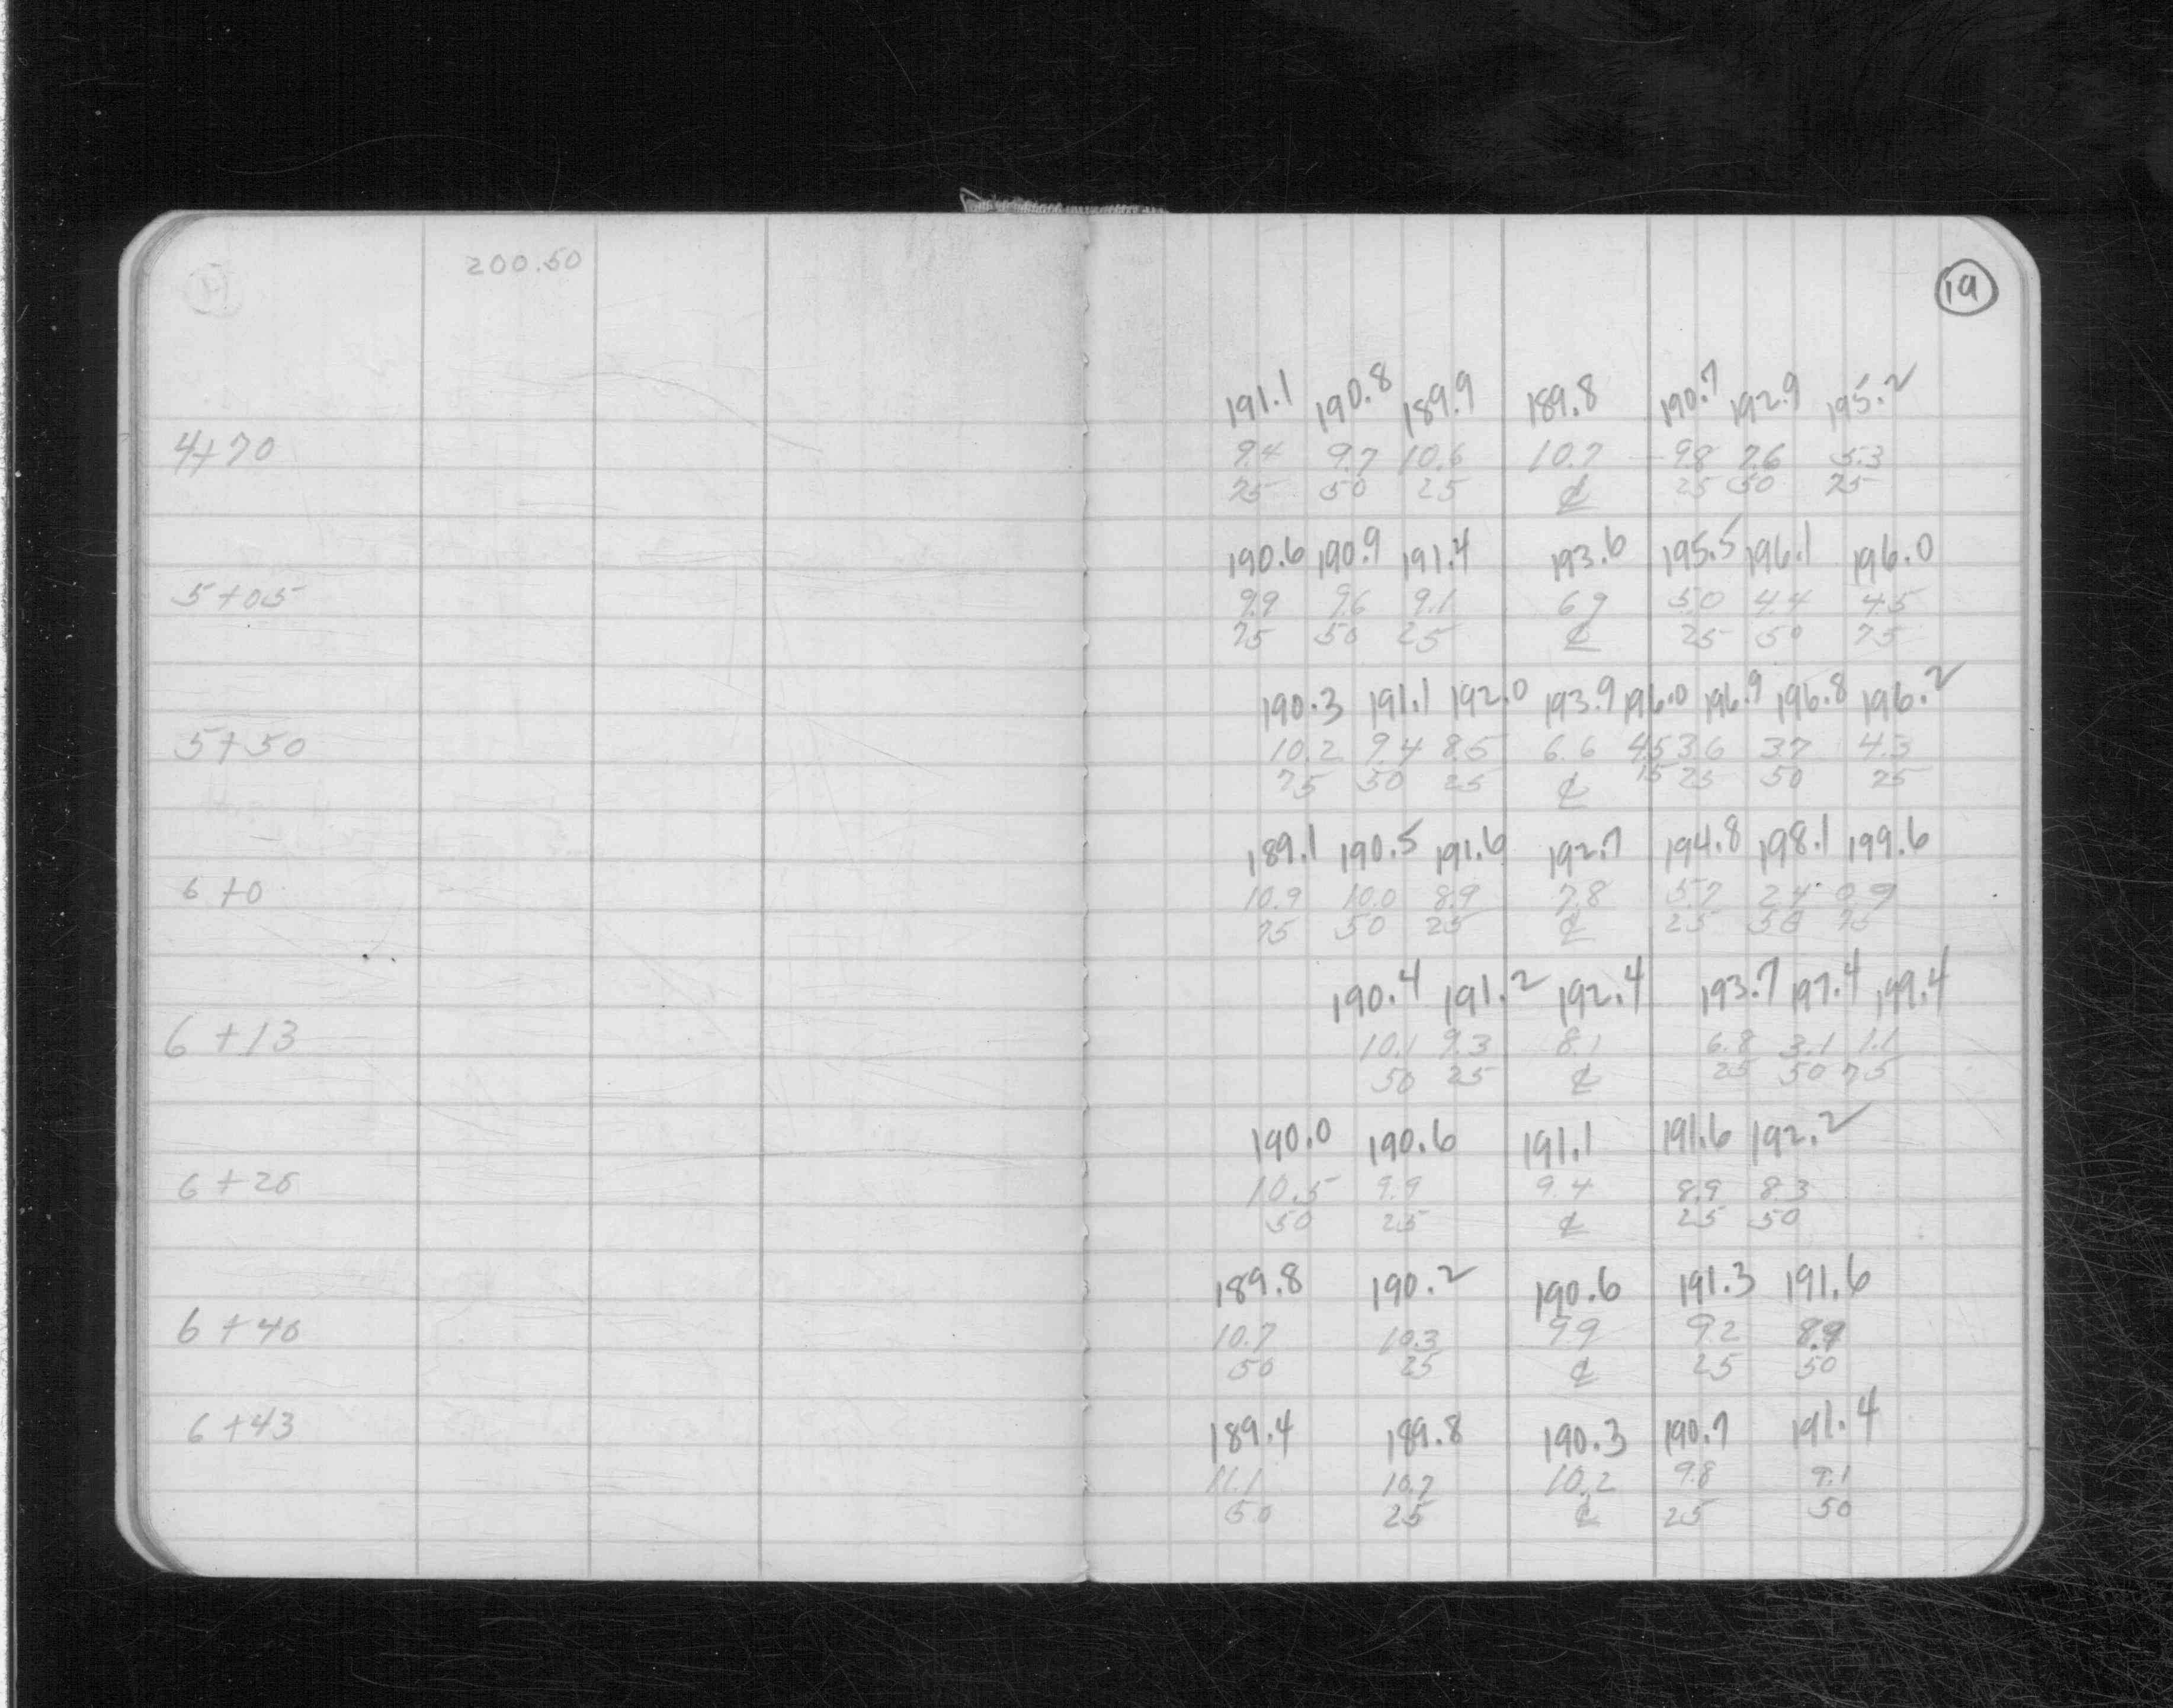 200.50
19
191.1 190.8 189.9 189.8 190.7 192.9 195.2
4+70 9.4 9.7 10.6 10.7 9.8 7.6 5.3
75 50 25 ℄ 25 50 75
190.6 190.9 191.4 193.6 195.5 196.1 196.0
5+05 9.9 9.6 9.1 6.9 5.0 4.4 4.5
75 50 25 ℄ 25 50 75
190.3 191.1 192.0 193.9 196.0 196.9 196.8 196.2
5+50 10.2 9.4 8.5 6.6 4.5 3.6 3.7 4.3
75 50 25 ℄ 15 25 50 75
189.1 190.5 191.6 192.7 194.8 198.1 199.6
6+0 10.9 10.0 8.9 7.8 5.7 2.4 0.9
75 50 25 ℄ 25 50 75
190.4 191.2 192.4 193.7 197.4 199.4
6+13 10.1 9.3 8.1 6.8 3.1 1.1
50 25 ℄ 25 50 75
190.0 190.6 191.1 191.6 192.2
10.5 9.9 9.4 8.9 8.3
50 25 ℄ 25 50
189.8 190.2 190.6 191.3 191.6
10.7 10.3 9.9 9.2 8.9
50 25 ℄ 25 50
189.4 189.8 190.3 190.7 191.4
6+43 11.1 10.7 10.2 9.8 9.1
50 25 ℄ 25 50